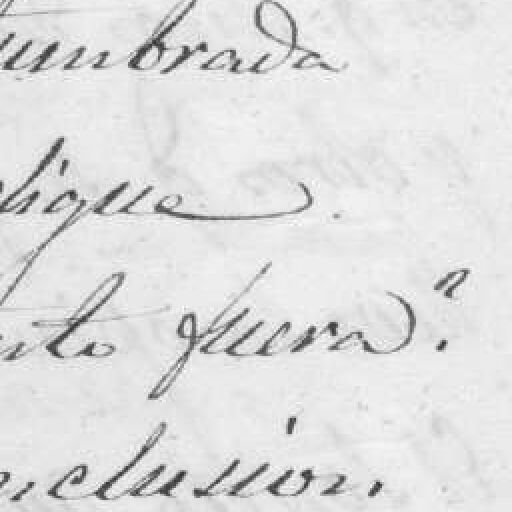 umbrada
lique.
nto fuera?
nclusion.